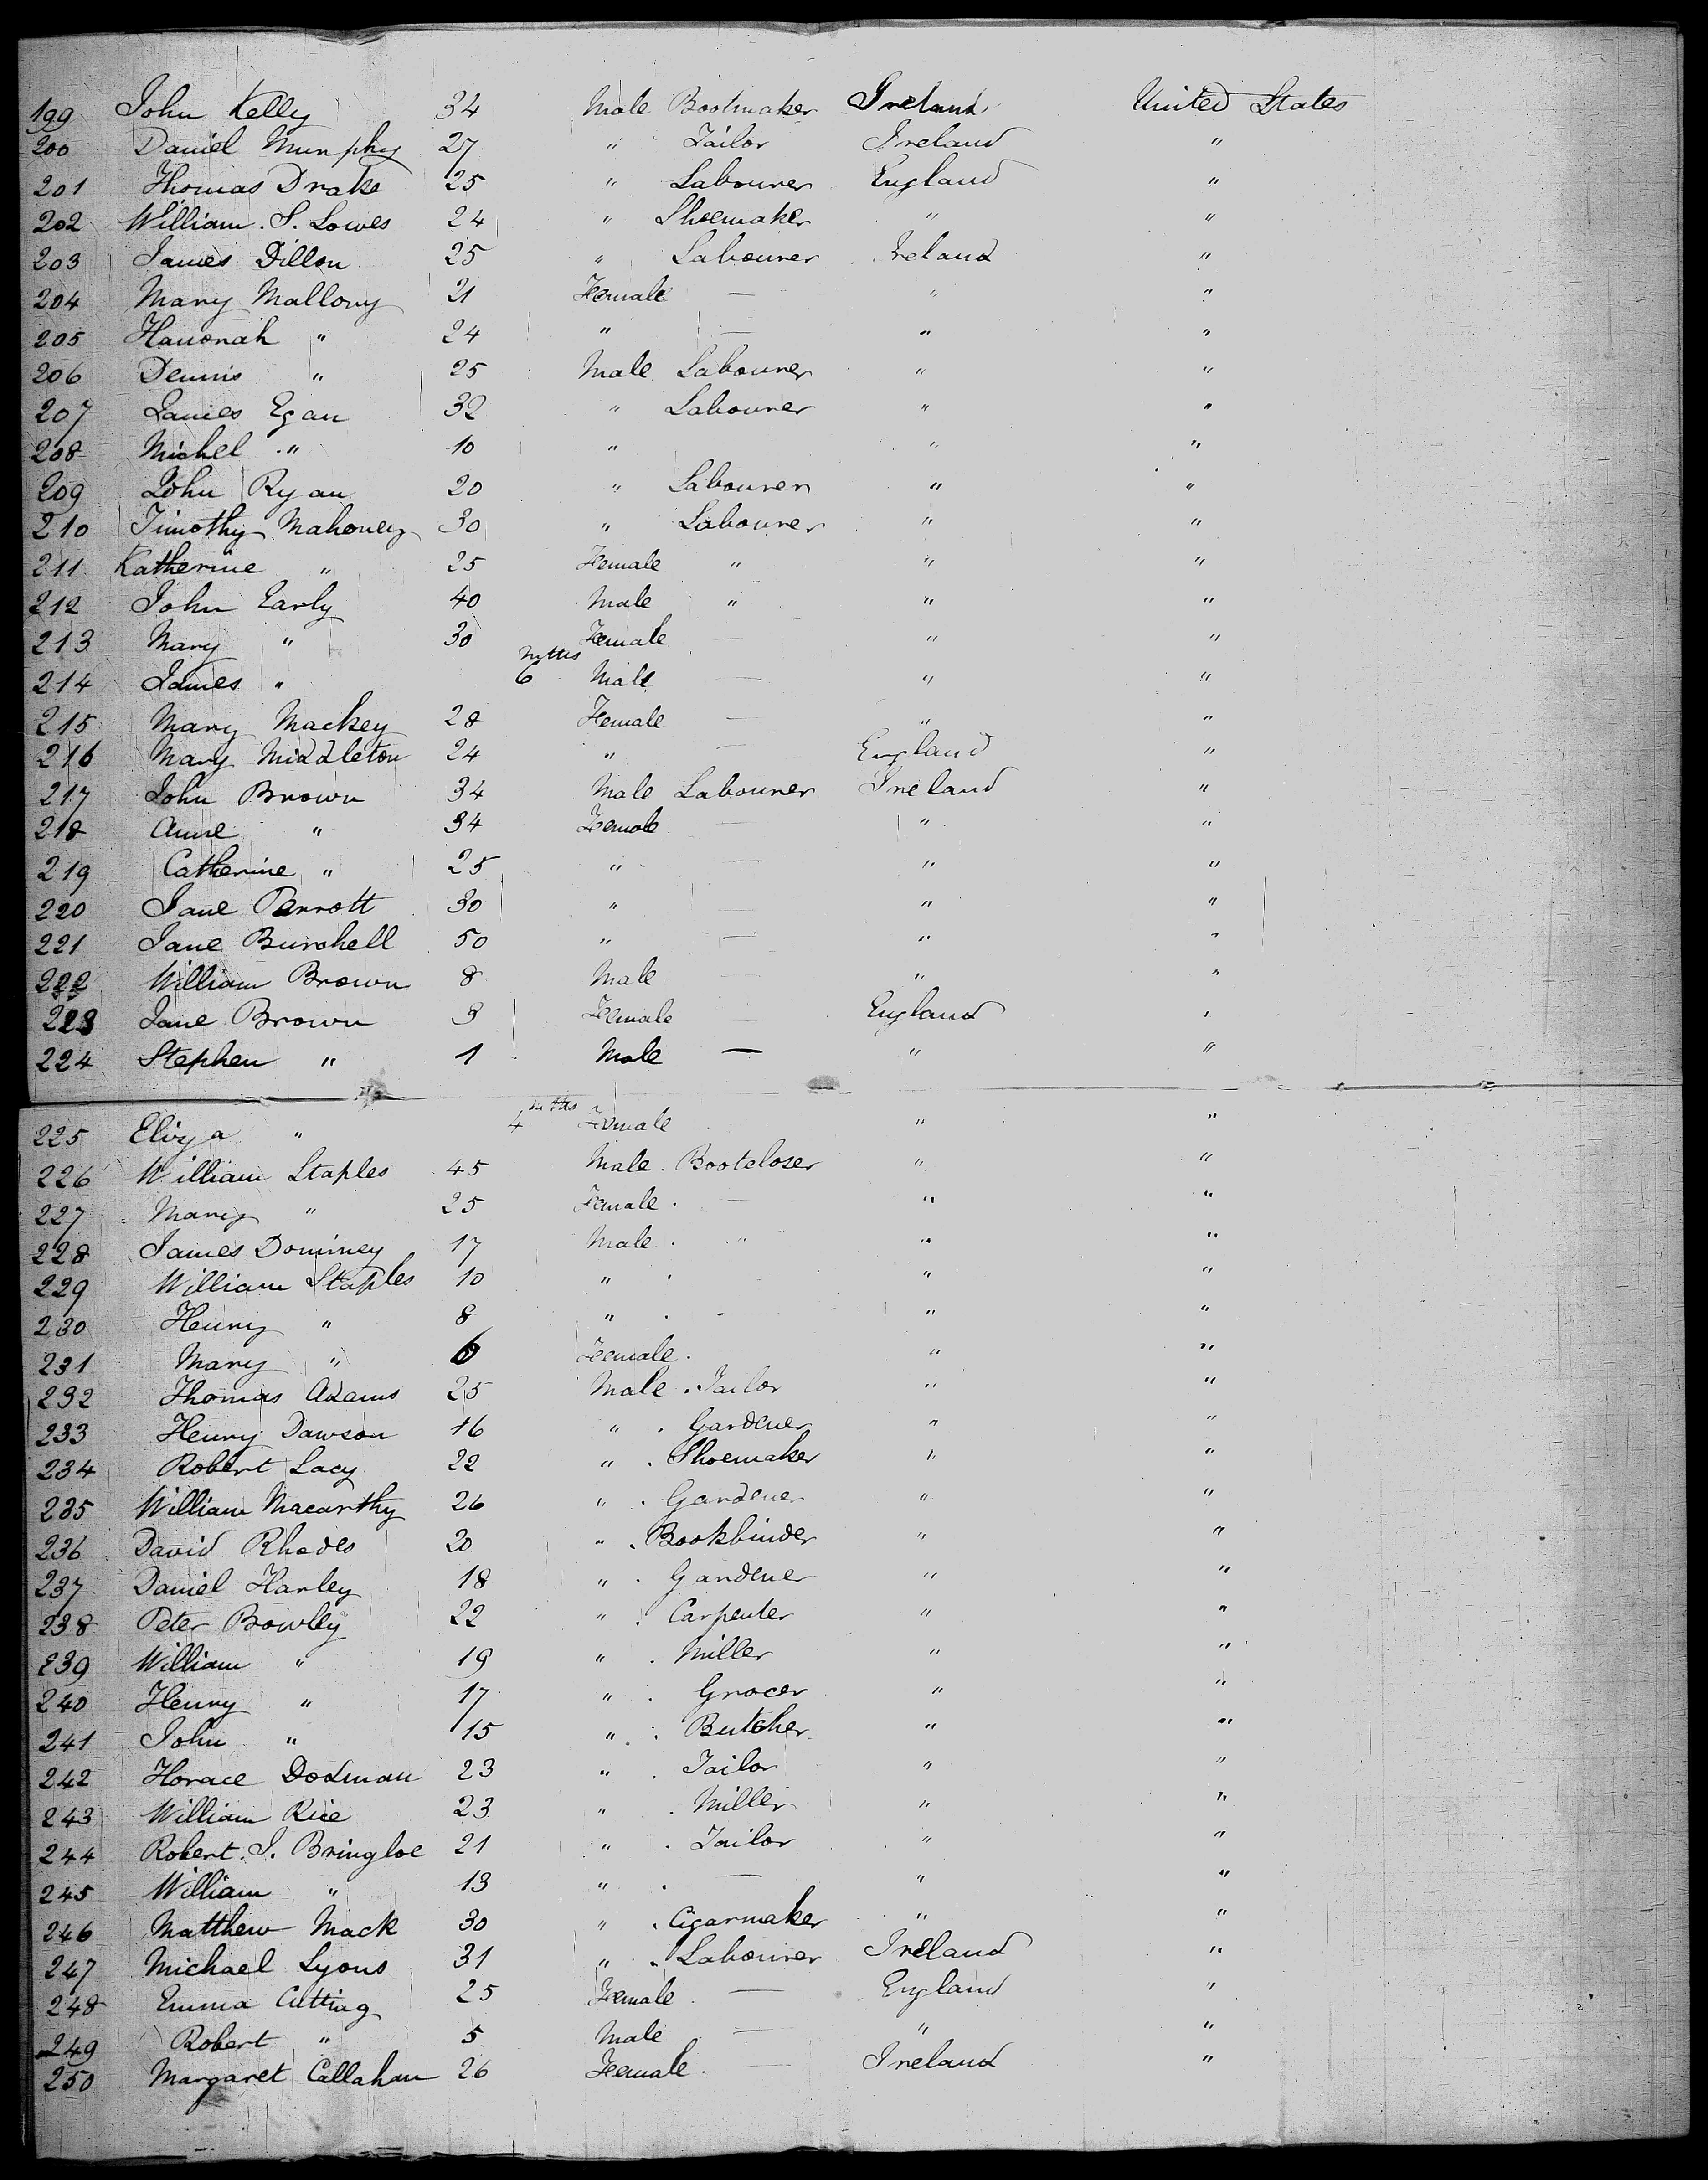 199 John Kelly 34 Male Bootmaker Ireland United States
200 Daniel Murphy 27 " Tailor Ireland "
201 Thomas Drake 25 " Labourer England "
202 William. S. Lowes 24 " Shoemaker " "
203 James Dillon 25 " Labourer Ireland "
204 Mary Mallony 21 Female — " "
205 Hanorah " 24 " — " "
206 Dennis " 25 Male Labourer " "
207 James Egan 32 " Labourer " "
208 Michel " 10 " " "
209 John Ryan 20 " Labourer " "
210 Timothy Mahoney 30 " Labourer " "
211 Katherine " 25 Female " " "
212 John Early 40 Male " " "
213 Mary " 30 Female — " "
214 James " 6 mths Male — " "
215 Mary Mackey 28 Female — " "
216 Mary Middleton 24 " — England "
217 John Brown 34 Male Labourer Ireland "
218 Anne " 34 Female — " "
219 Catherine " 25 " — " "
220 Jane Parrott 30 " — " "
221 Jane Burchell 50 " — " "
222 William Brown 8 Male — " "
223 Jane Brown 3 Female — England "
224 Stephen " 1 Male — " "
225 Eliza " 4 mths Female " "
226 William Staples 45 Male. Bootcloser " "
227 Mary " 25 Female. — " "
228 James Dominey 17 Male. " " "
229 William Staples 10 " . - " "
230 Henry " 8 " . - " "
231 Mary " 6 Female. " "
232 Thomas Adams 25 Male. Tailor " "
233 Henry Dawson 16 " . Gardener " "
234 Robert Lacy 22 " . Shoemaker " "
235 William Macarthy 26 " . Gardener " "
236 David Rhodes 20 " . Bookbinder " "
237 Daniel Harley 18 " . Gardener " "
238 Peter Bowley 22 " . Carpenter " "
239 William " 19 " . Miller " "
240 Henry " 17 " . Grocer " "
241 John " 15 " . Butcher " "
242 Horace Dodman 23 " . Tailor " "
243 William Rice 23 " . Miller " "
244 Robert. J. Bringloe 21 " . Tailor " "
245 William " 13 " . — " "
246 Matthew Mack 30 " . Cigarmaker " "
247 Michael Lyons 31 " . Labourer Ireland "
248 Emma Cutting 25 Female. — England "
249 Robert " 5 Male — " "
250 Margaret Callahan 26 Female. — Ireland "